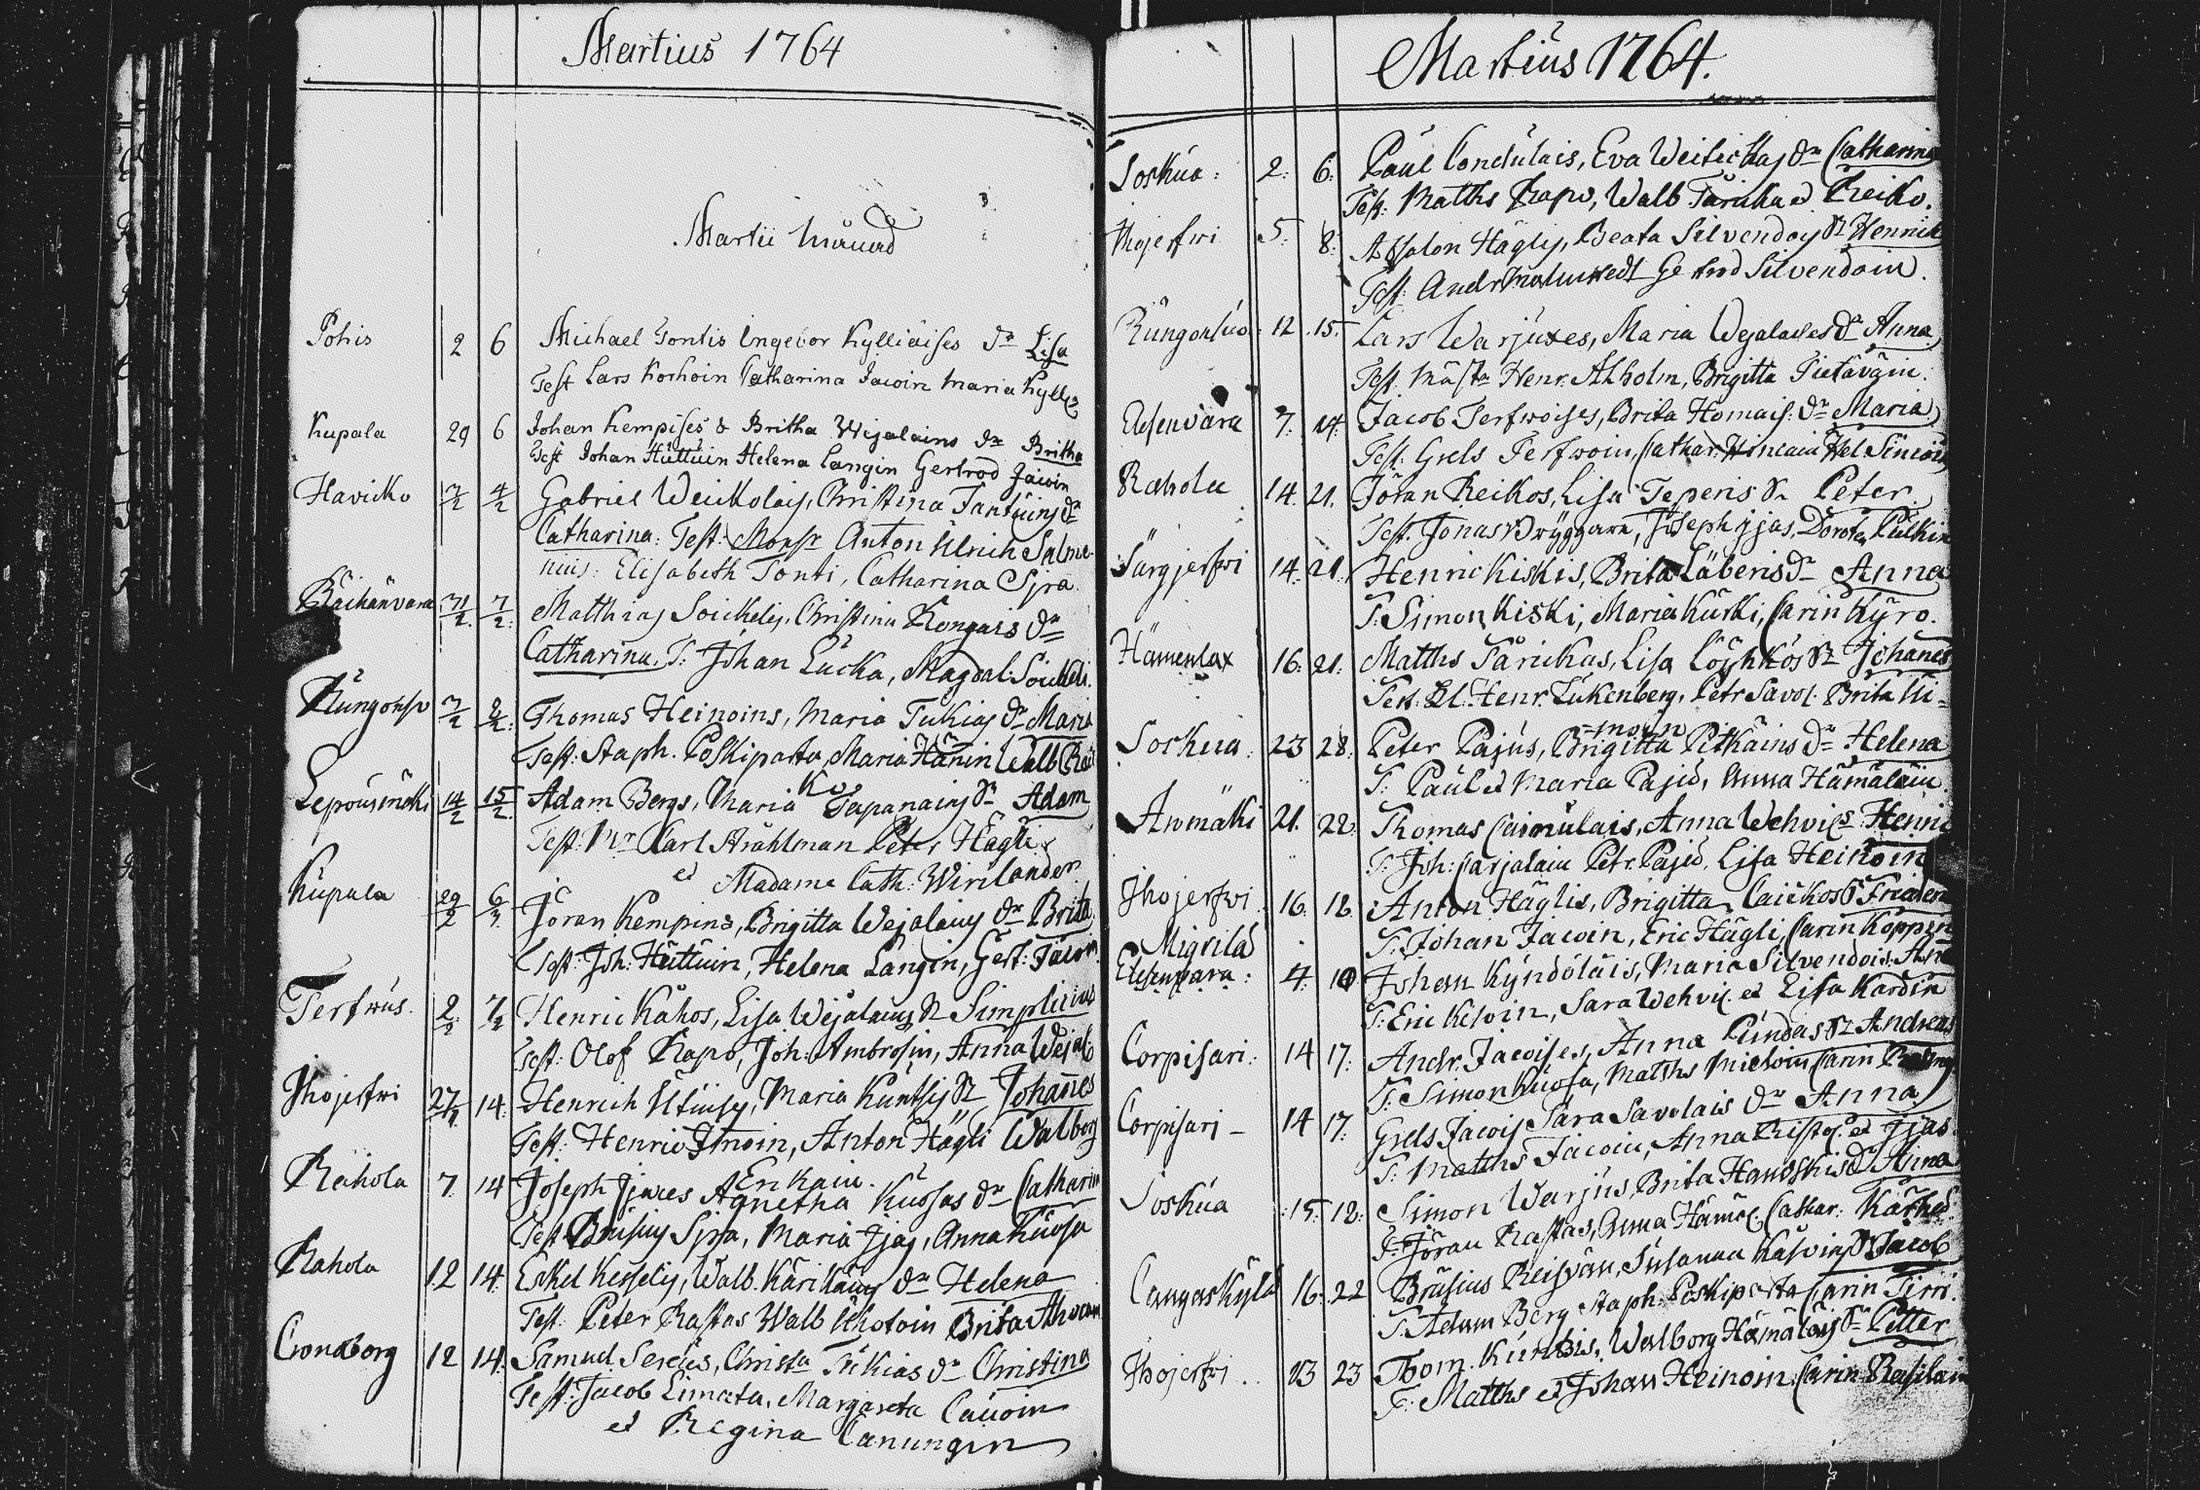 Martius 1764
Martii månad
Pohis 2 6 Michael Tontis Ingebor Kylliäises dr Lisa
Test Lars Korhoin Catharina Jacoin Maria Kylliä
Kupala 29 6 Johan Kempises & Britha Wejalains dr Britha
Test Johan Hüttüin Helena Langin Gertrod Jacoin
Havicko 3/2 4/2 Gabriel Weickolais, Christina Tantüins dr
Catharina. Test: Monsr Anton Ulrich Salme-
nius: Elisabeth Tonti, Catharina Spra.
Räihänvara 31/1 7/2 Matthias Soickelis, Christina Kongais dr
Catharina. T: Johan Lucka, Magdal: Soickeli.
Kungonsu 3/2 Thomas Heinoins, Maria Tukias dr Maria
Test: Staph. Poskiparta, Maria Hänin Walb
Lepousmäki 14/2 15/2 Adam Bergs, Maria Tapanains Sn Adam
Test: Mr Karl Stråhlman Peter Hägli
et Madame Cath: Wirilander
Kupala 29/2 6/3 Jöran Kempins, Brigitta Wejalains dr Brita
Test: Joh: Hüttüin, Helena Langin, Gert: Jacoin
Terfwus 2/2 7/2 Henric Kähos, Lisa Wejalains Sn Simplicius
Test: Olof Rapo, Joh: Ambrosin, Anna Wejal
Jhojerfwi 27/2 14. Henrich Utuisis, Maria Kuntsis Sn Johannes
Test: Henric Immoin, Anton Hägli Walborg
Erikain.
Rahola 7. 14 Joseph Ijæes Agnetha Kuosas dr Catharin
Test Brusius Spra, Maria Ijas, Anna Kuosa
Rahola 12 14. Eskel Kesselis, Walb. Kärikäins dr Helena
Test: Peter Rastas Walb Uhotoin Brita Ahvenain
Cronoborg 12 14. Samuel Sereus, Christa Tukias dr Christina
Test: Jacob Limata, Margareta Cauoin
et Regina Canungin
Martius 1764.
Soskua: 2: 6: Paul Condulais, Eva Weitickas dr Catharina
Test: Matths Rapo, Walb Taricka et Reiko.
Jhojerfwi 5: 8: Absalon Häglis, Beata Silvendois Sn Henrik
Test: Andr Malmstedt Getrod Silvendoin.
Kungonsuo 12 15. Lars Warjuxes, Maria Wejalaises dr Anna
Test. Mästa Henr. Ahholm, Brigitta Tietäväin.
Elisenvara 7: 14. Jacob Terfwoises, Brita Homais: dr Maria
Test: Grels Terfwoin, Cathar. Hinlain Hel. Sincoin
Rahola 14. 21. Jöran Reikos, Lisa Teperis Sn Peter.
Test. Jonas Bryggare, Joseph Ijas, Dorotea Pulkin
Särgjerfwi 14. 21. Henric Kiskis, Brita Läberis dr Anna
T: Simon Kiski, Maria Kurki, Carin Kyro.
Hämenlax 16: 21. Matths Tarickas, Lisa Löyhkös Sn Johanes
Test. Henr. Lukenberg, Petr Savol. Brita Si-
-moin
Soskua 23 28: Peter Pajus, Brigitta Pitkäins dr Helena
T: Paul et Maria Pajud, Anna Hämäläin.
Aromäki 21. 22 Thomas Caimulais, Anna Wehvis Henric
T: Joh: Carjalain Petr. Pajud, Lisa Heinoin
Jhojerfwi 16. 18. Anton Häglis, Brigitta Caickos Sn Frieder
T: Johan Jacoin, Eric Hägli, Carin Koppin
Migrilä
Elisenvara: 4. 10 Johan Kyndoläis, Maria Silvendois. An
T: Eric Kesoin, Sara Wehvil. et Lisa Kardin
Corpisari: 14 17: Andr. Jacoises, Anna Pindas Sn Andreas
T: Simon Kuosa, Matths Mickoin Carin
Corpisari 14 17: Grels Jacois Sara Savolais dr Anna
T: Matths Jacoin, Anna Risto: et Ijas.
Soskua 15. 18: Simon Warjus, Brita Hanoskis dr Anna
T: Jöran Rastas, Anna Hämäl: Cathar: Kärkes
Cangaskylä 16. 22 Brusius Reisvän, Susanna Kasvins Sn Jacob
T. Adam Berg Staph: Poskiparta Carin Tirri.
Jhojerfwi 13 23 Thom. Kuntsis, Walborg Hämäläis Sn Petter
T: Matths et Johan Heinoin Carin Rasilain